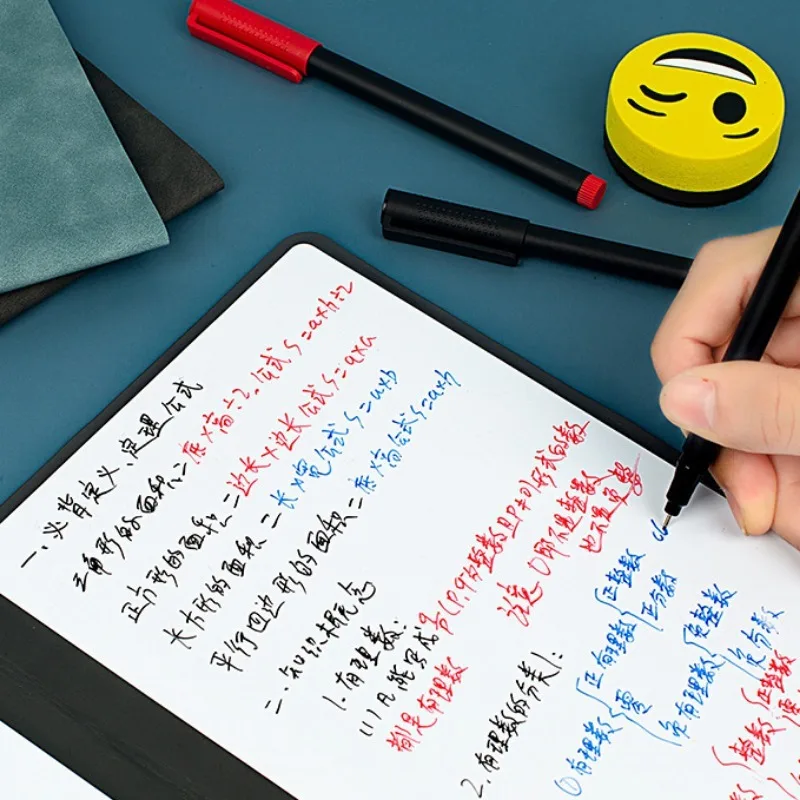 一、必背定义、定理公式
三角形的面积=底×高÷2。公式S=a×h÷2
正方形的面积=边长×边长公式S=a×a
长方形的面积=长×宽公式S=a×b
平行四边形的面积=底×高公式S=a×h
二、知识概念
1.有理数:
(1)凡能写成 (p,q为整数且P≠0)形式的数
都是有理数
注意 0即不是正数
也不是负数
2.有理数的分类:
①有理数
正有理数
正整数
正分数
零
负有理数
负整数
负分数
整数
正整数
零